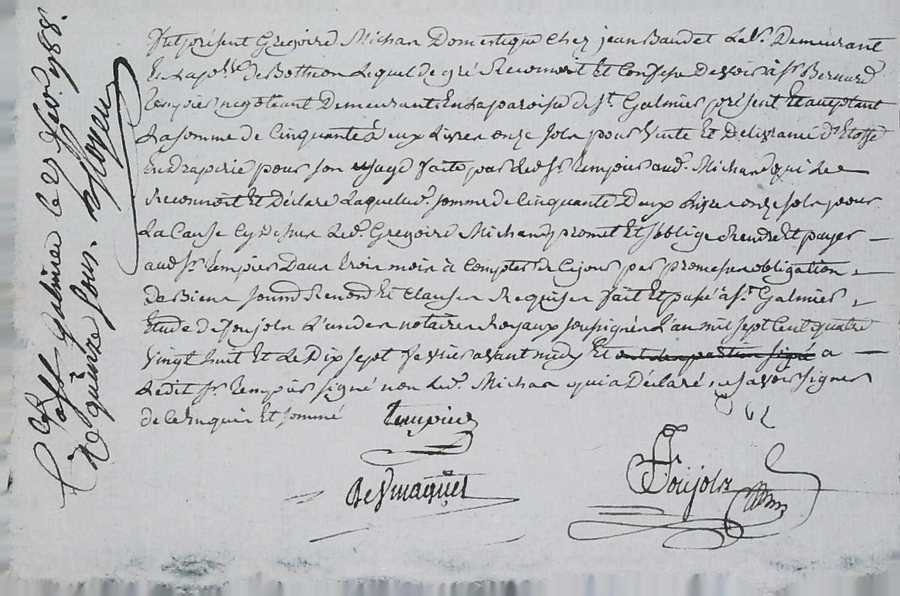 Fut présent Gregoire Michan Domestique chez jean Baudet Led. Demeurant
En La p.sse de Bothion Lequel de gré Reconnoit Et Confesse Devoir à s.r Bernard
tempier negotiant Demeurant En La paroisse de s.t Galmier présent Et acceptant
La somme de Cinquante deux Livres onze sols pour Vente Et Delivrance d'Etoffe
En draperie pour son usage faite par Led. s.r tempier aud. Michan qui Le
Reconnoit Et Déclare Laquelle d. somme de Cinquante Deux Livres onze sols pour
La Cause Cy dessus Led. Gregoire Michan promet Et s'oblige Rendre Et payer
aud. s.r tempier Dans trois mois à Compter de Ce jour par promesse obligation
de Biens soumd. Renond. Et Clauses Requises fait Et passé à s.t Galmier
Etude de Foujols L'un des notaires Royaux soussignés L'an mil sept Cent quatre
Vingt huit Et Le Dix sept fevrier avant midy Et ont les parties signé a
Ledit s.r tempier signé non Led. Michan qui a Déclaré ne savoir signer
de Ce Enquis Et sommé
tempier
Foujols
à s.t Galmier le 27 fev. 1788.
Reçu quinze sous.